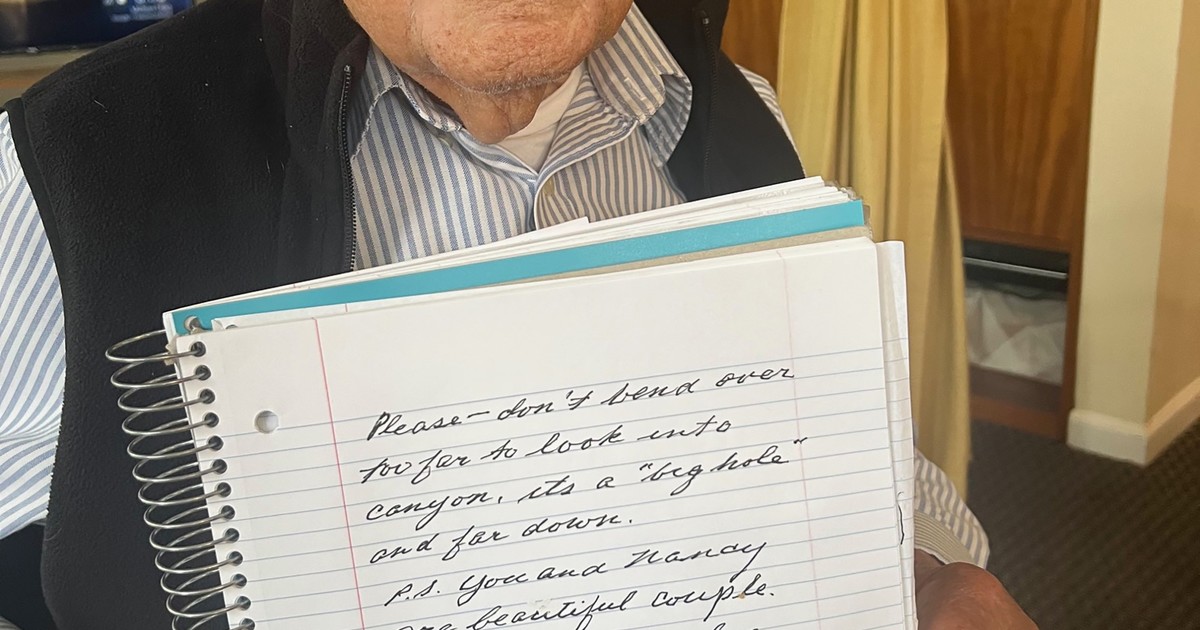 Please - don't bend over
too far to look into
canyon, its a "big hole"
and far down.
P.S. You and Nancy
are beautiful couple.